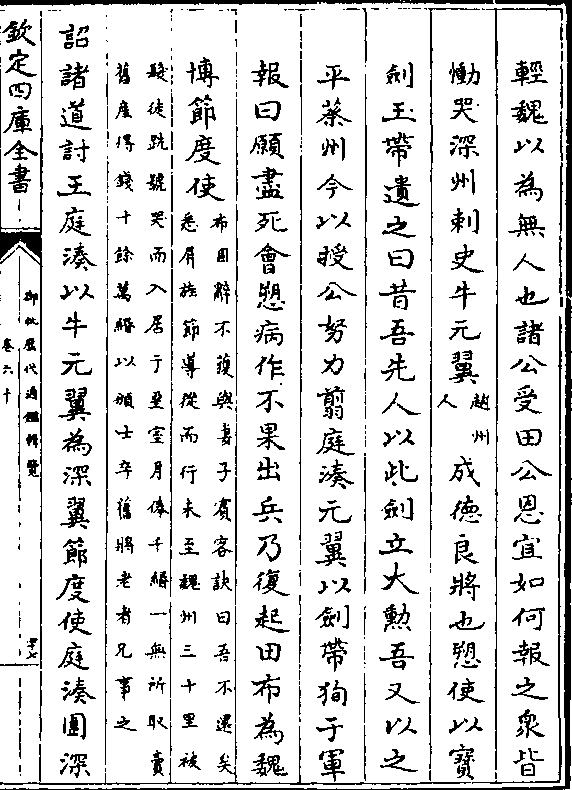 輕魏以為無人也諸公受田公恩宜如何報之衆皆
慟哭深州刺史牛元翼趙州人成德良將也愬使以寶
劍玉帶遺之曰昔吾先人以此劍立大勲吾又以之
平蔡州今以授公努力翦庭湊元翼以劍帶狥于軍
報曰願盡死會愬病作不果出兵乃復起田布為魏
博節度使布固辭不獲與妻子賓客訣曰吾不還矣
悉屏旌節導從而行未至魏州三十里被
髮徒跣號哭而入居于堊室月俸千緡一無所取賣
舊產得錢十餘萬緡以頒士卒舊將老者兄事之
詔諸道討王庭湊以牛元翼為深翼節度使庭湊圍深
欽定四庫全書
御批歴代通鑑輯覽
卷六十